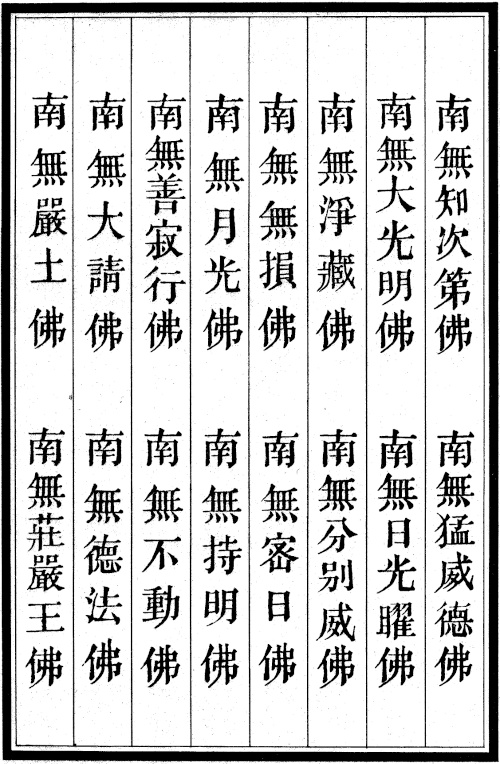 南無知次第佛　南無猛威德佛
南無大光明佛　南無日光曜佛
南無淨藏佛　南無分別威佛
南無無損佛　南無密日佛
南無月光佛　南無持明佛
南無善寂行佛　南無不動佛
南無大請佛　南無德法佛
南無嚴土佛　南無莊嚴王佛